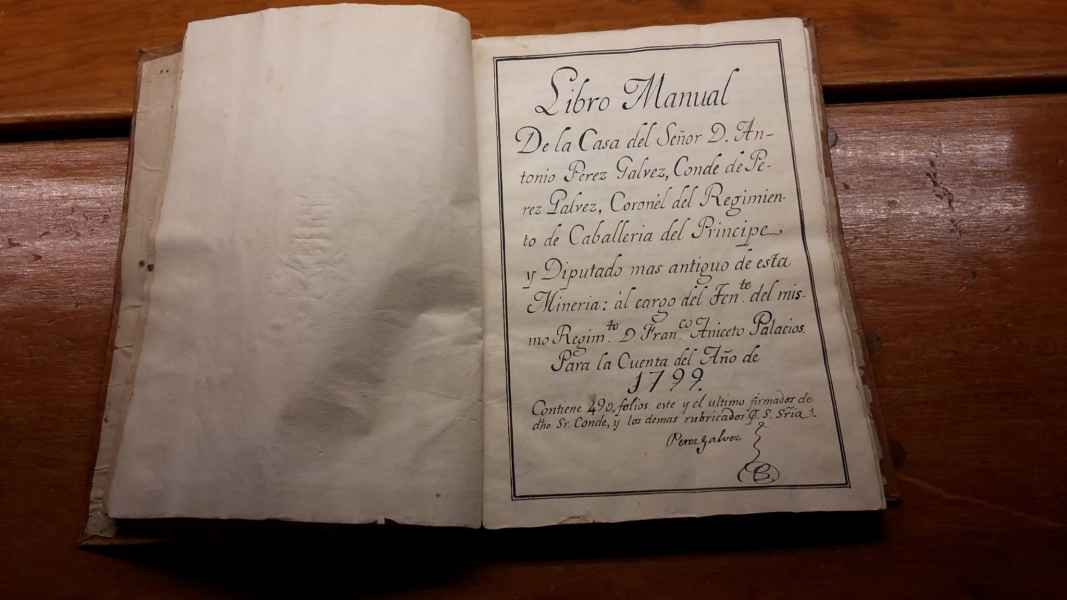 Libro Manual
De la Casa del Señor D. An-
tonio Perez Galvez, Conde de Pe-
rez Galvez, Coronèl del Regimien-
to de Caballeria del Principe
y Diputado mas antiguo de esta
Mineria: àl cargo del Ten.te del mis-
mo Regim.to D Fran.co Aniceto Palacios.
Para la Cuenta del Año de
1799.
Contiene 490, folios este y el ultimo firmados de
dho Sr. Conde, y los demas rubricados P. S. Sria.
Perez galvez